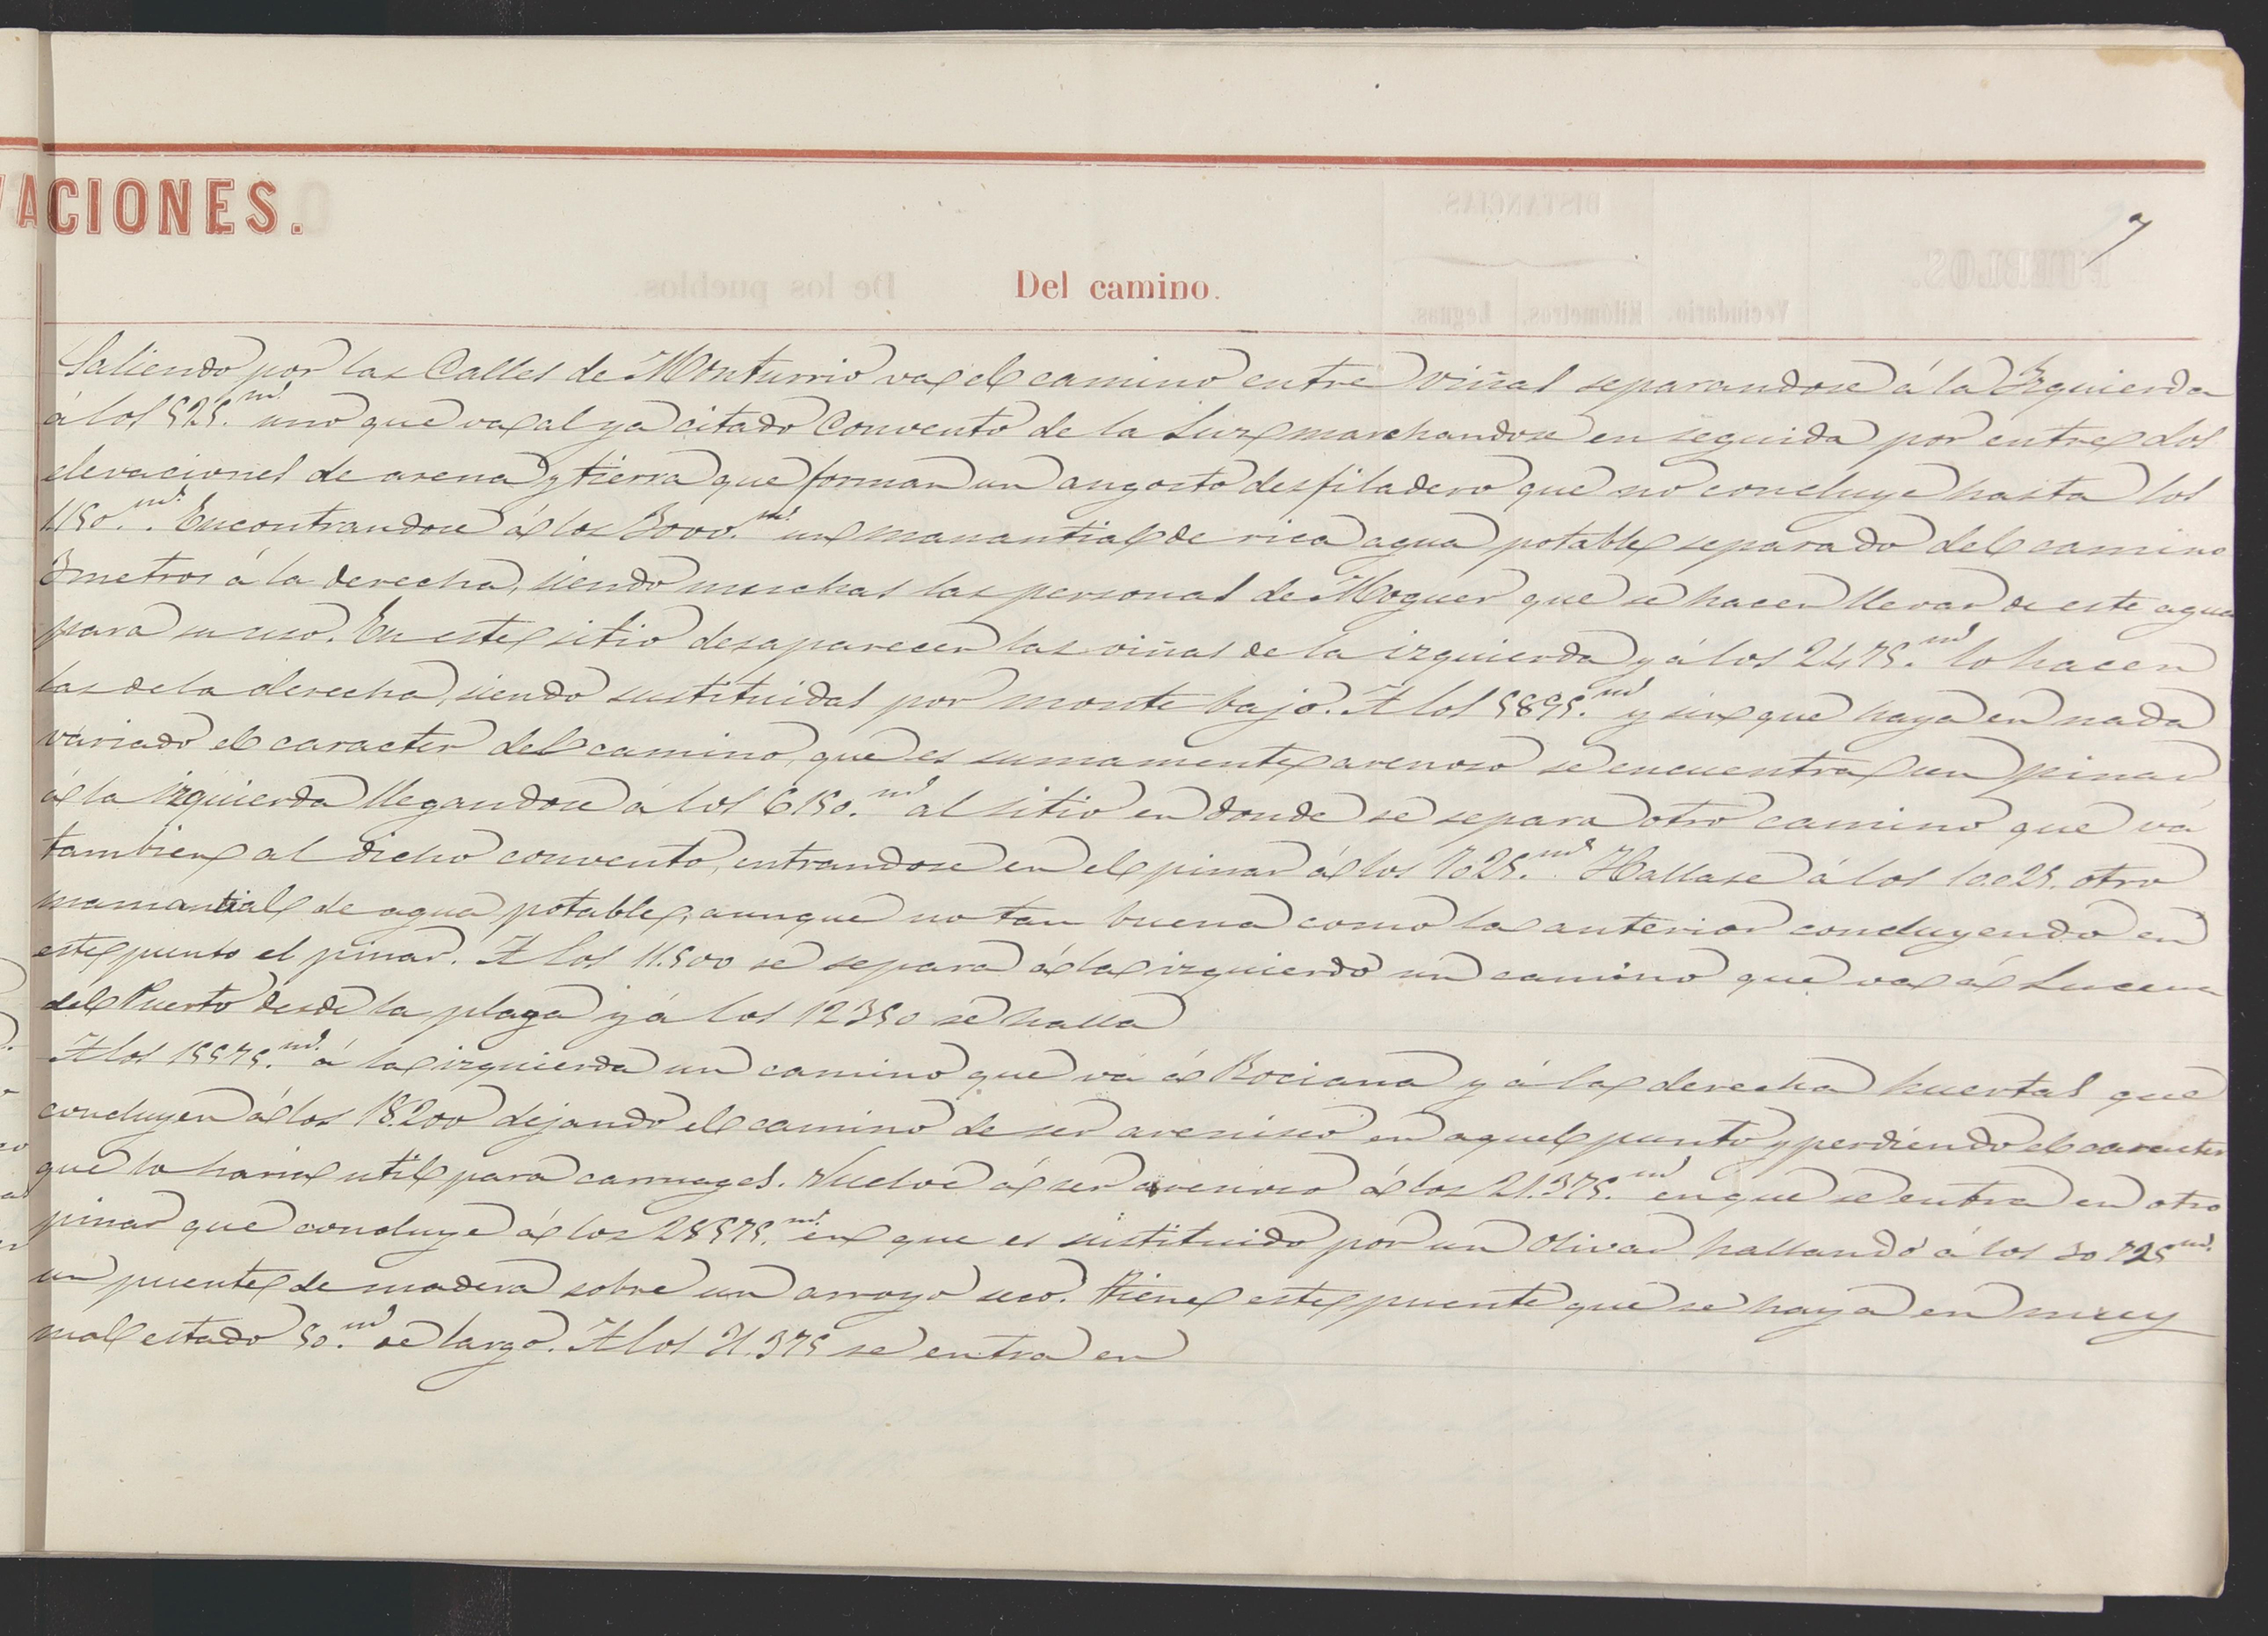 VACIONES.
7
Del camino.
Saliendo por las Calles de Monturrio va el camino entre viñas separandose á la Izquierda
á los 525.ms uno que va al ya citado Convento de la Luz marchandose en seguida por entre dos
elevaciones de arena y tierra que forman un angosto desfiladero que no concluye hasta los
1150.ms. Encontrandose á los 3000.ms un manantial de rica agua potable separado del camino
3 metros á la derecha, siendo muchas las personas de Moguer que se hacen llevar de este agua
para su uso. En este sitio desaparecen las viñas de la izquierda y á los 2475.ms lo hacen
las de la derecha, siendo sustituidas por monte bajo. A los 5895.ms y sin que haya en nada
variado el caracter del camino, que es sumamente arenoso se encuentra un pinar
á la izquierda llegandose á los 6150.ms al sitio en donde se separa otro camino que vá
tambien al dicho convento, entrandose en el pinar á los 7025.ms Hallase á los 10.025. otro
manantial de agua potable, aunque no tan buena como la anterior concluyendo en
este punto el pinar. A los 11.500 se separa á la izquierda un camino que va á Lucena
del Puerto desde la playa y á los 12350 se halla
A los 15575.ms á la izquierda un camino que vá á Rociana y á la derecha huertas que
concluyen á los 18.200 dejando el camino de ser arenisco en aquel punto y perdiendo el caracter
que lo haria util para carruages. Vuelve á ser arenoso á los 21.375.ms en que se entra en otro
pinar que concluye á los 28575.ms en que es sustituido por un olivar hallando á los 30725ms.
un puente de madera sobre un arroyo seco. Tiene este puente que se haya en muy
mal estado 50.ms de largo. A los 31.375 se entra en